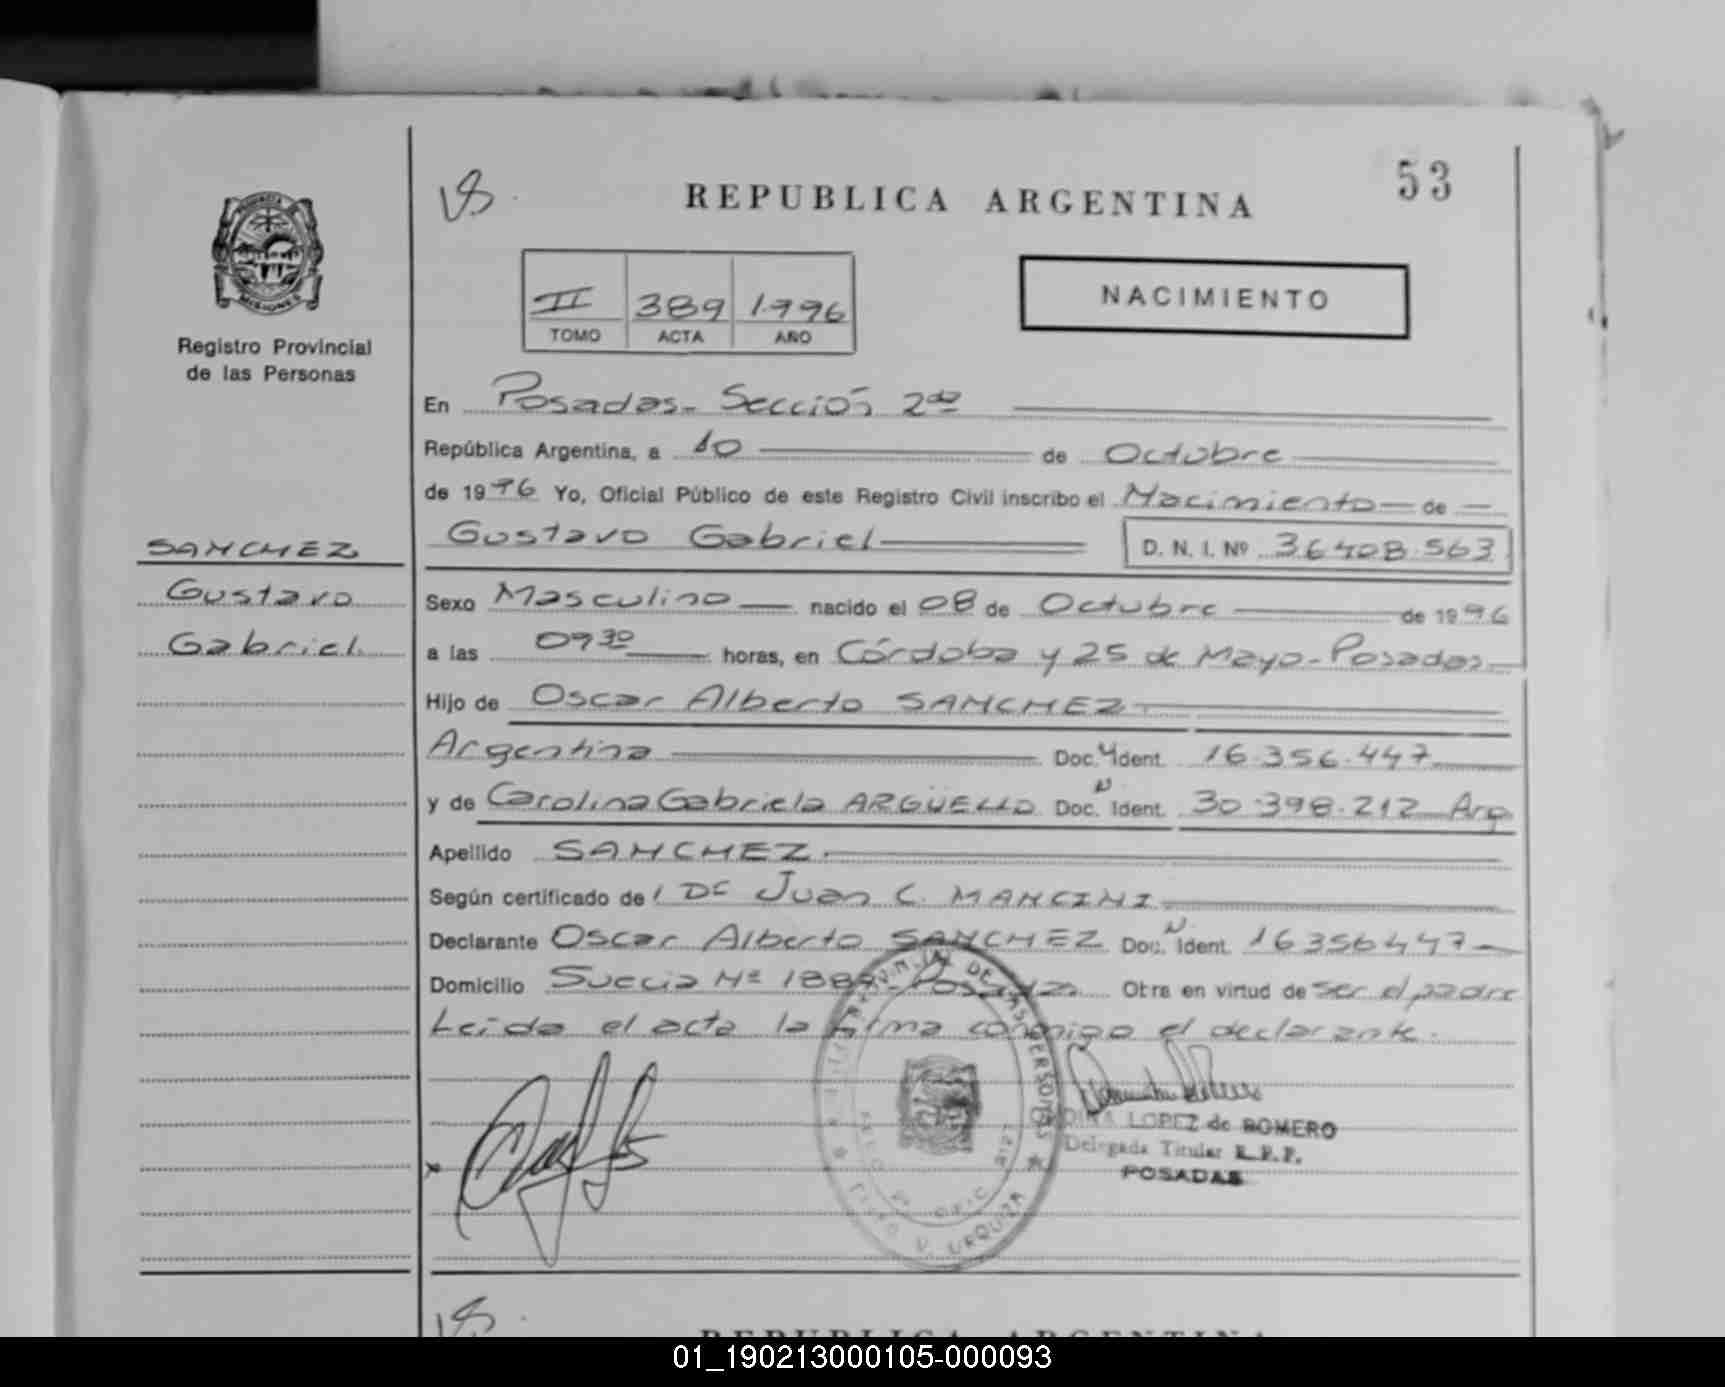 53
REPUBLICA ARGENTINA
PROVINCIA
MISIONES
Registro Provincial
de las Personas
NACIMIENTO
II 389 1996
TOMO ACTA AÑO
En Posadas - Sección 2da
República Argentina, a 10 de Octubre
de 1996 Yo, Oficial Público de este Registro Civil inscribo el Nacimiento de
SANCHEZ
Gustavo Gabriel D. N. I. Nº 36408.563
Gustavo
Sexo Masculino nacido el 08 de Octubre de 1996
Gabriel
a las 09 30 horas, en Córdoba y 25 de Mayo - Posadas
Hijo de Oscar Alberto SANCHEZ
Argentina Doc. Ident. 16.356.447
y de Carolina Gabriela ARGÜELLO Doc. N Ident. 30.398.212 Arg
Apellido SANCHEZ
Según certificado del Dr Juan C. MANCINI
Declarante Oscar Alberto SANCHEZ Doc. N Ident. 16356447
Domicilio Suecia Nº 1889 - Posadas Otra en virtud de ser el padre
Leida el acta la firma conmigo el declarante.
LOPEZ de ROMERO
Delegada Titular R.P.P.
POSADAS
REPUBLICA ARGENTINA
01_190213000105-000093